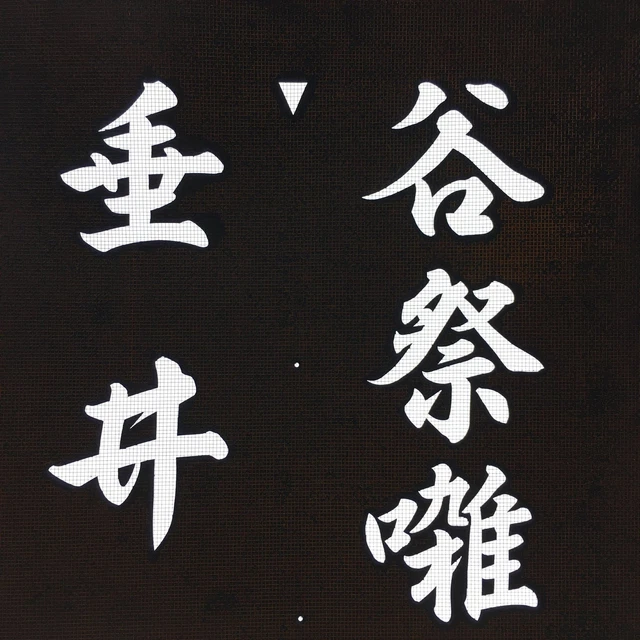 谷祭囃
垂井